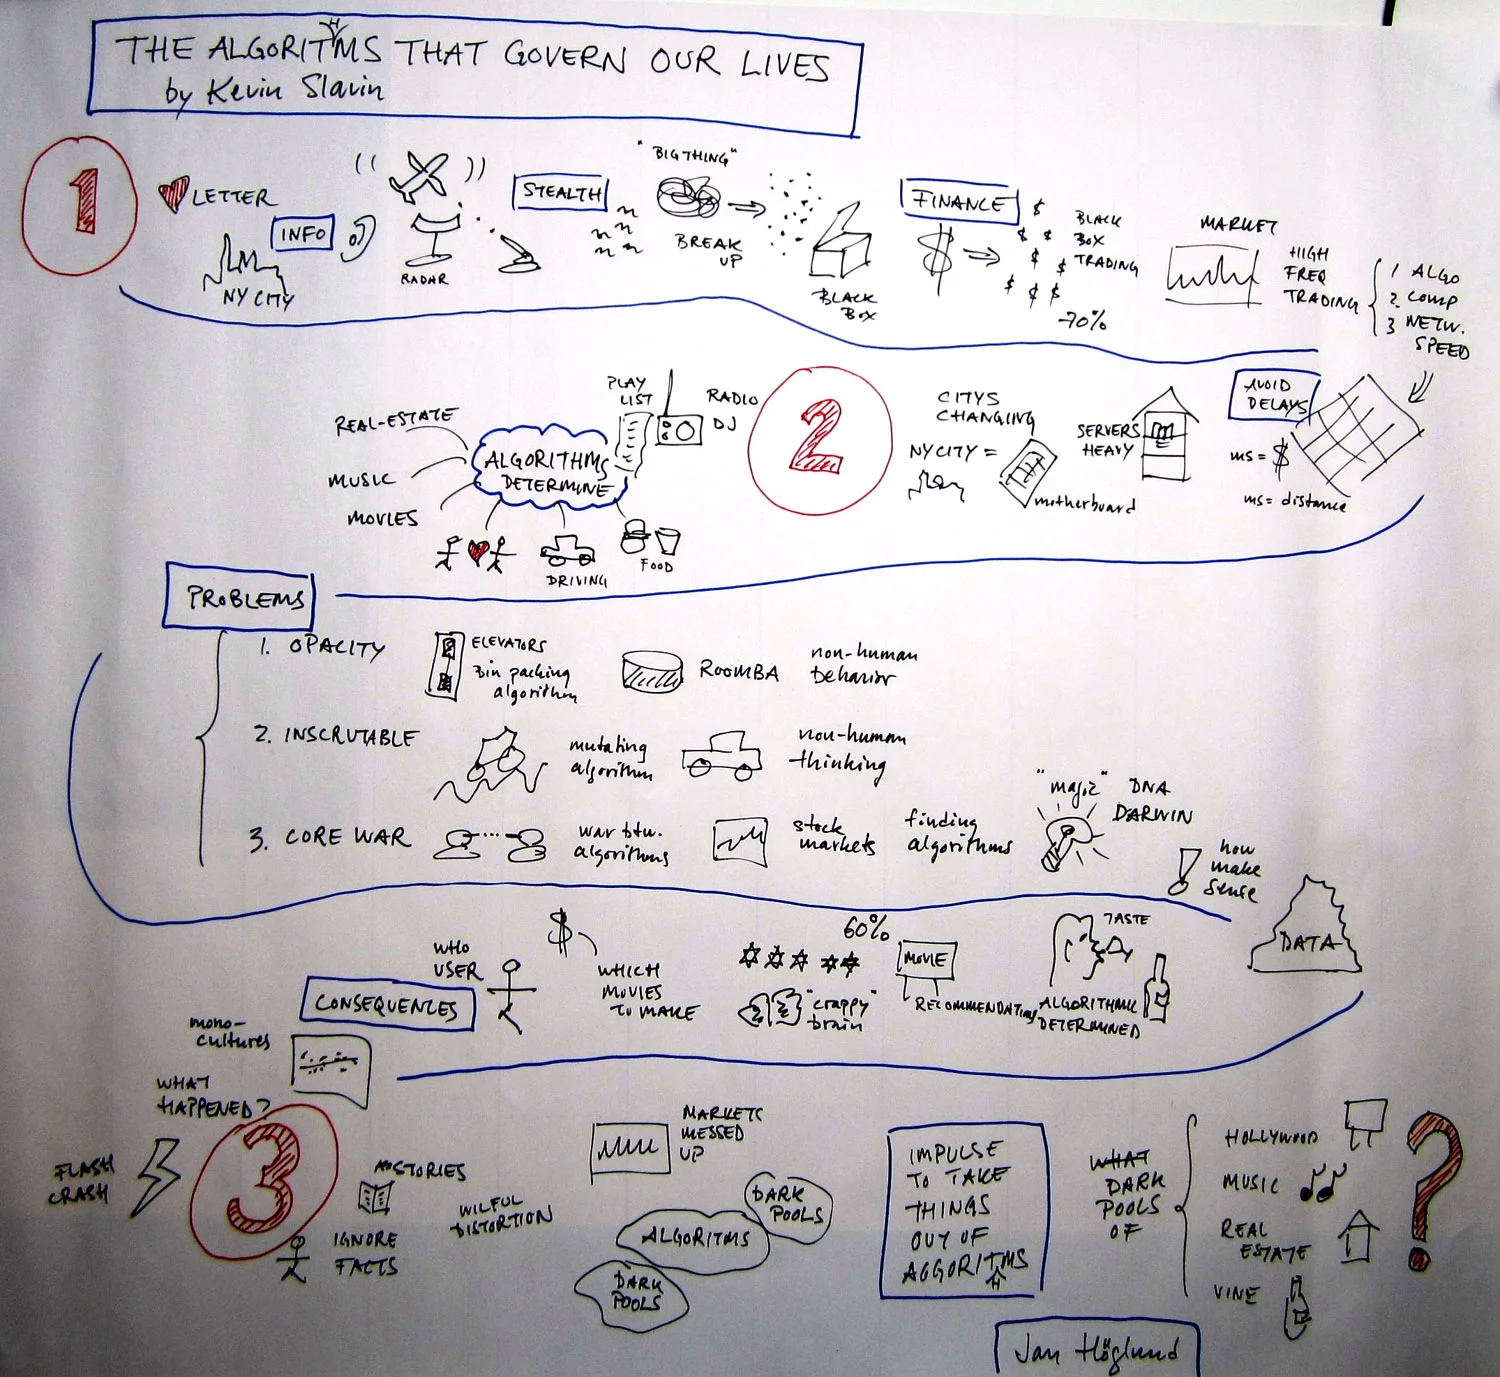 THE ALGORITHMS THAT GOVERN OUR LIVES
by Kevin Slavin
1
LETTER
INFO
NY CITY
RADAR
STEALTH
"BIG THING"
BREAK
UP
BLACK
BOX
FINANCE
$
$
$ $
$
$
$ $ $
BLACK
BOX
TRADING
-70%
MARKET
HIGH
FREQ
TRADING
1 ALGO
2. COMP
3 NETW.
SPEED
REAL-ESTATE
MUSIC
MOVIES
ALGORITHMS
DETERMINE
PLAY
LIST
RADIO
DJ
DRIVING
FOOD
2
CITYS
CHANGING
NY CITY =
motherboard
SERVERS
HEAVY
AVOID
DELAYS
ms = $
ms = distance
PROBLEMS
1. OPACITY
ELEVATORS
bin packing
algorithm
ROOMBA
non-human
behavior
2. INSCRUTABLE
mutating
algorithm
non-human
thinking
3. CORE WAR
war btw.
algorithms
stock
markets
finding
algorithms
"magic" DNA
DARWIN
how
make
sense
DATA
CONSEQUENCES
WHO
USER
$
WHICH
MOVIES
TO MAKE
60%
"crappy"
brain
MOVIE
RECOMMENDATING
TASTE
ALGORITHMIC
DETERMINED
mono-
cultures
WHAT
HAPPENED?
FLASH
CRASH
3
STORIES
IGNORE
FACTS
WILFUL
DISTORTION
MARKETS
MESSED
UP
DARK
POOLS
ALGORITMS
DARK
POOLS
IMPULSE
TO TAKE
THINGS
OUT OF
ALGORITHMS
WHAT
DARK
POOLS
OF
HOLLYWOOD
MUSIC
REAL
ESTATE
VINE
?
Jan Höglund